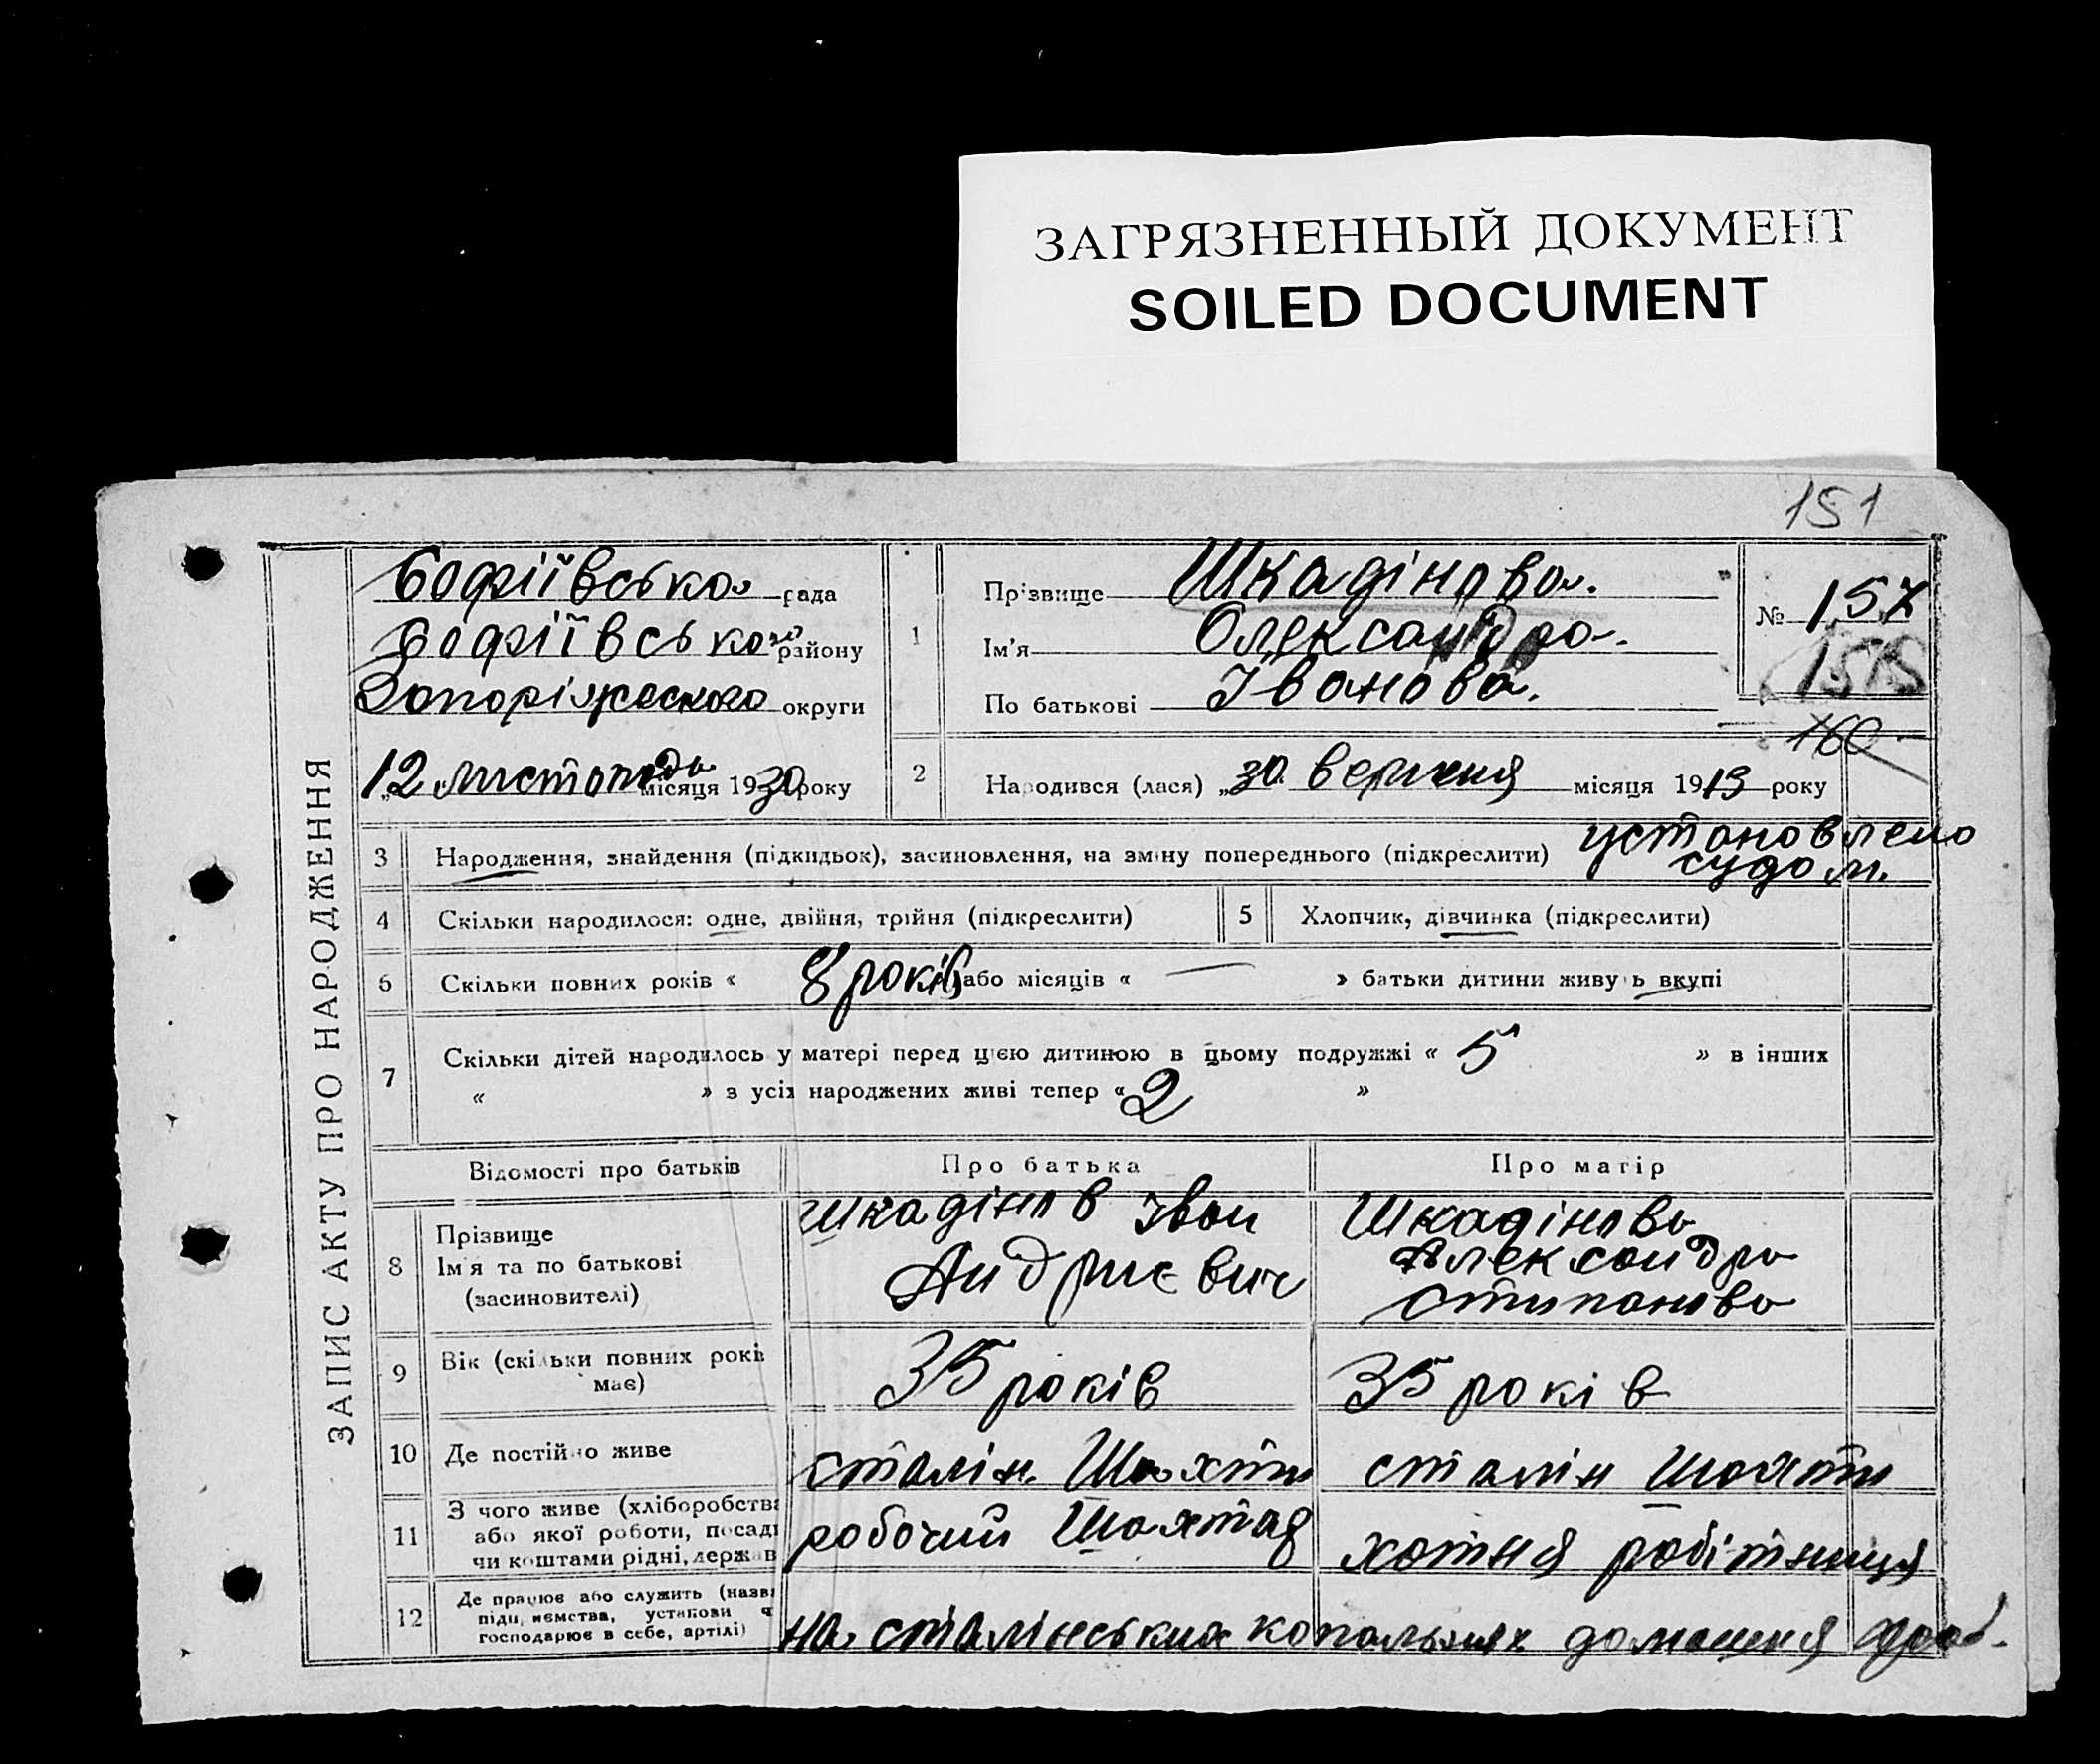 ЗАГРЯЗНЕННЫЙ ДОКУМЕНТ
SOILED DOCUMENT
151
ЗАПИС АКТУ ПРО НАРОДЖЕННЯ
Софіївська рада
Софіївського району
Запоріжського округи
12 листопада місяця 1930 року
1
Прізвище Шкадінова.
Ім'я Олександра.
По батькові Іванова.
№ 157
160
2 Народився (лася) „30 вересня місяця 1913 року
3 Народження, знайдення (підкидьок), засиновлення, на зміну попереднього (підкреслити) установлено
судом.
4 Скільки народилося: одне, двійня, трійня (підкреслити) 5 Хлопчик, дівчинка (підкреслити)
6 Скільки повних років « 8 років або місяців « — » батьки дитини живуть вкупі
7 Скільки дітей народилось у матері перед цією дитиною в цьому подружжі « 5 » в інших
« » з усіх народжених живі тепер « 2 »
Відомості про батьків Про батька Про матір
8 Прізвище
Ім'я та по батькові
(засиновителі)
Шкадінов Іван
Андриєвич
Шкадінова
Александра
Стипанова
9 Вік (скільки повних років
має)
35 років 35 років
10 Де постійно живе сталін. Шахти сталін шахти
11 З чого живе (хліборобства
або якої роботи, посади
чи коштами рідні, держав
робочий Шахтар хатня робітниця
12 Де працює або служить (назва
підприємства, установи ч
господарює в себе, артілі)
на сталінських копальнях домашня